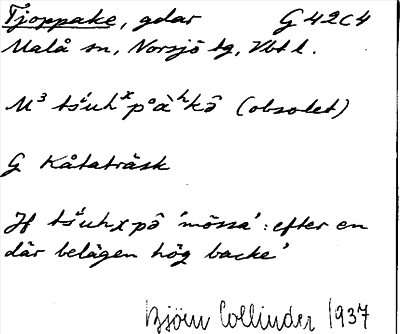 Tjoppake, gdar G 42 C 4
Malå sn, Norsjö tg, Vbt l.
M³ tśuhˣpåàʰkō̂ (obsolet)
G Kåtaträsk
Jf tśuhχpō̂ 'mössa': efter en
där belägen hög backe'
Björn Collinder 1937